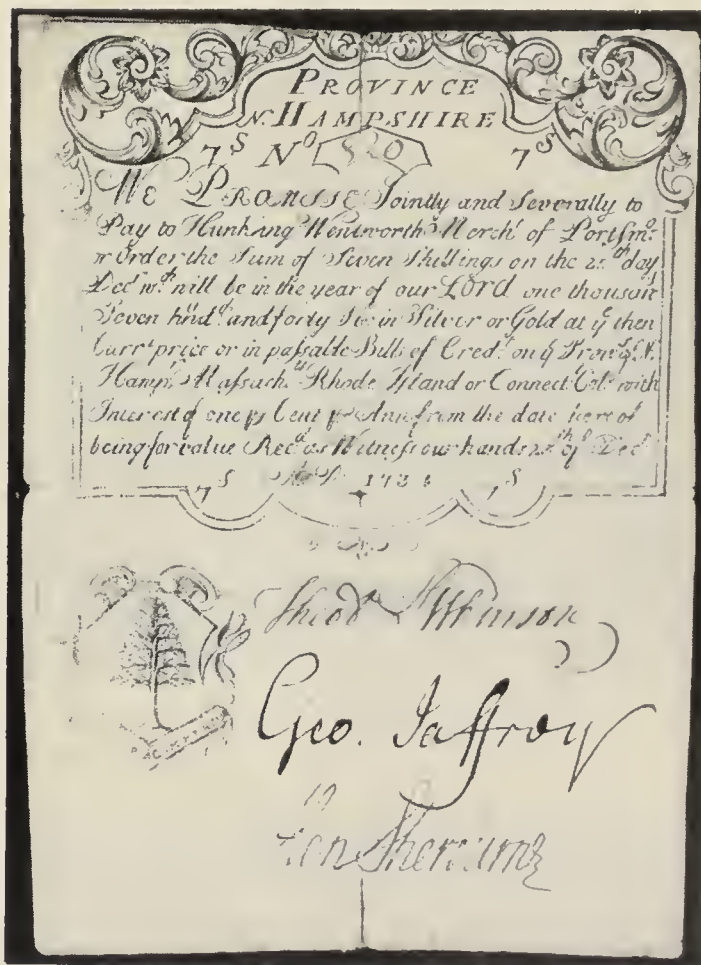 PROVINCE
N. HAMPSHIRE
7S No 520 7S
WE PROMISE Jointly and Severally to
Pay to Hunking Wentworth Mercht of Portsmo
or Order the Sum of Seven Shillings on the 25th day
Decr wch will be in the year of our LORD one thousd
Seven hundd and forty in Silver or Gold at ye then
Currt price or in passable Bills of Credt on ye Prove of N.
Hampr Massachts Rhode Island or Connectt Col. with
Interest of one pr Cent pr Ann from the date hereof
being for value Recd as Witness our hands 25th of Decr
7S 7S
Theodr Atkinson
Geo. Jaffrey
Sherburne